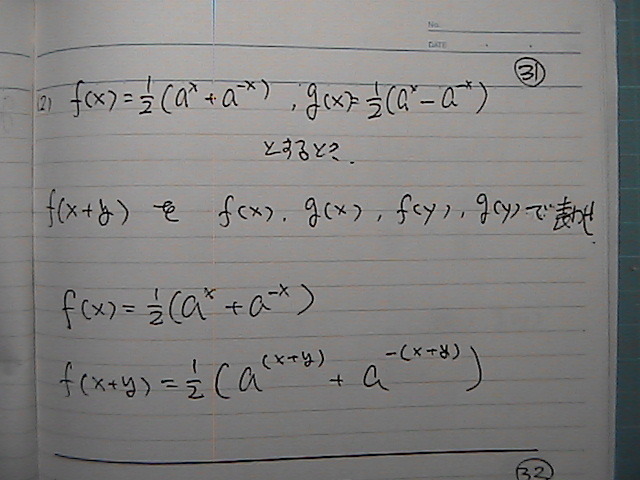 No.
DATE
㉛
(2) f(x)=½(aˣ+a⁻ˣ), g(x)=½(aˣ-a⁻ˣ)
とするとき.
f(x+y) を f(x), g(x), f(y), g(y)で表わせ.
f(x)=½(aˣ+a⁻ˣ)
f(x+y)=½(a^(x+y)+a^-(x+y))
㉜